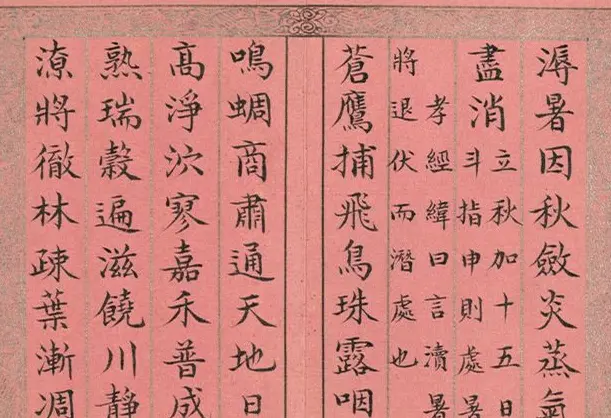 溽暑因秋斂炎蒸氣
盡消
立秋加十五日
斗指申則處暑
孝經緯曰言瀆暑
將退伏而潛處也
蒼鷹捕飛鳥珠露咽
鳴蜩商肅通天地日
髙淨泬寥嘉禾普咸
熟瑞穀遍滋饒川靜
潦將徹林疎葉漸凋